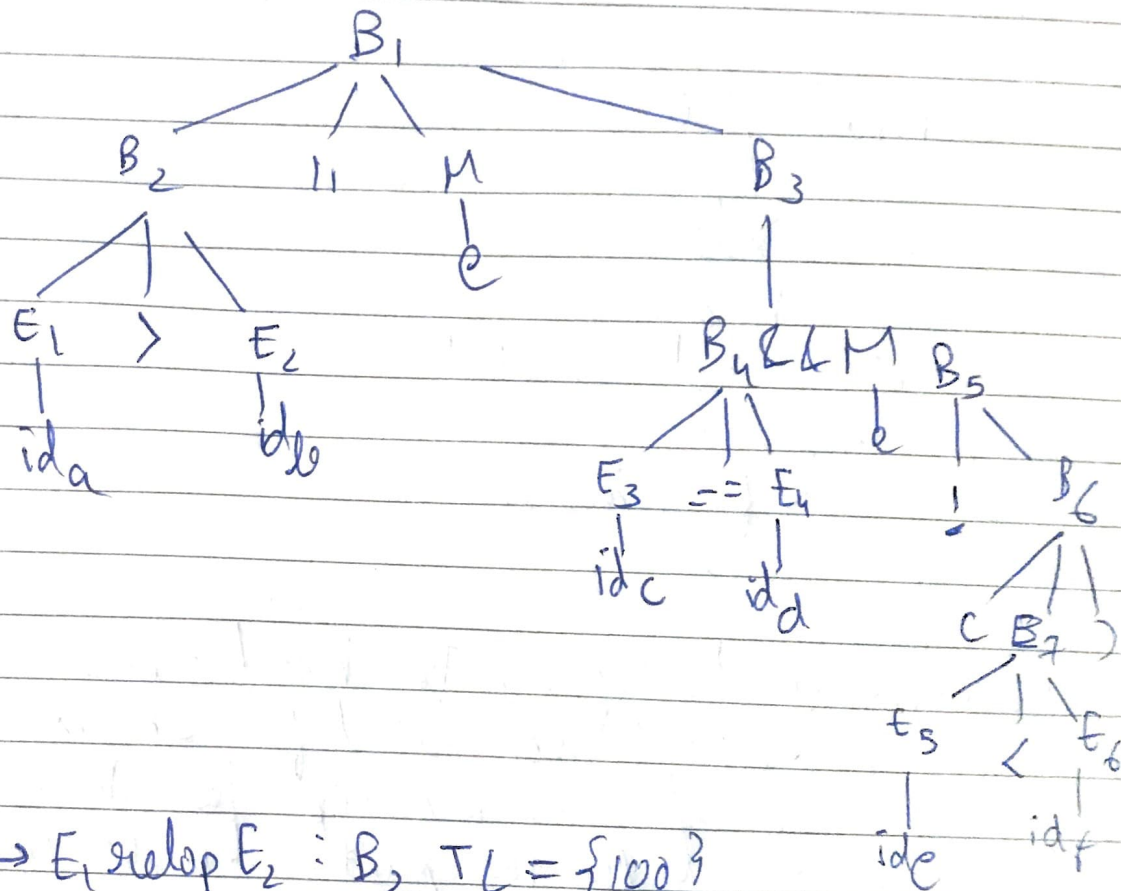 B₁
B₂ || M B₃
e
E₁ > E₂
B₄ && M B₅
id_a id_b
e
E₃ == E₄ ! B₆
id_c id_d
( B₇ )
E₅ < E₆
id_e id_f
→ E₁ relop E₂ : B₂ TL = {100}